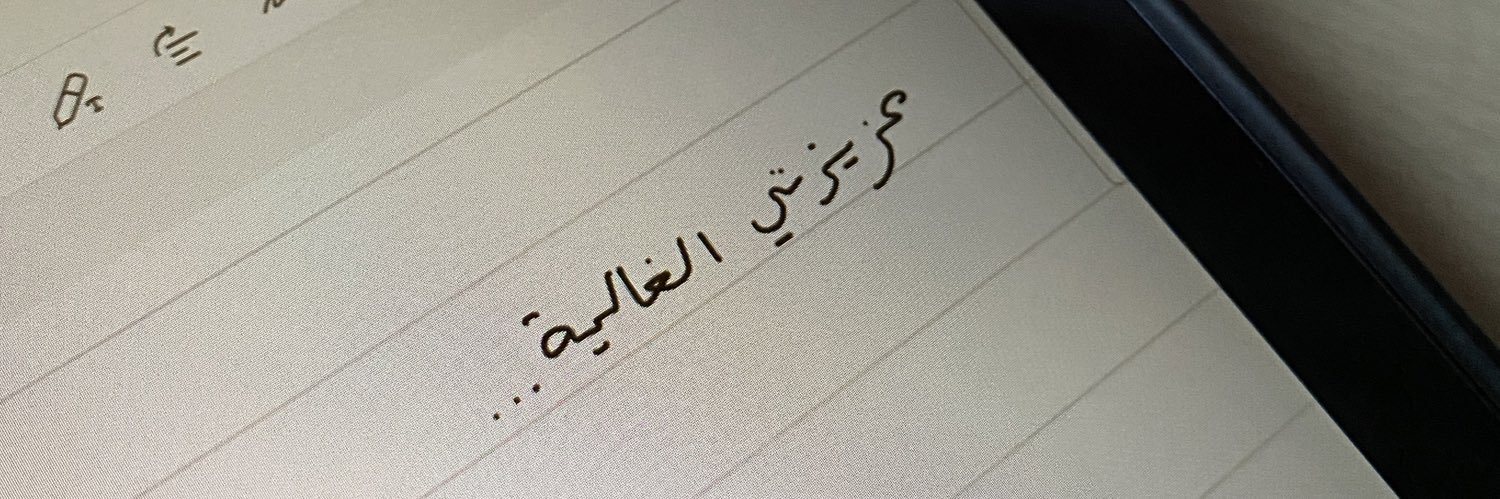 عزيزتي الغالية...